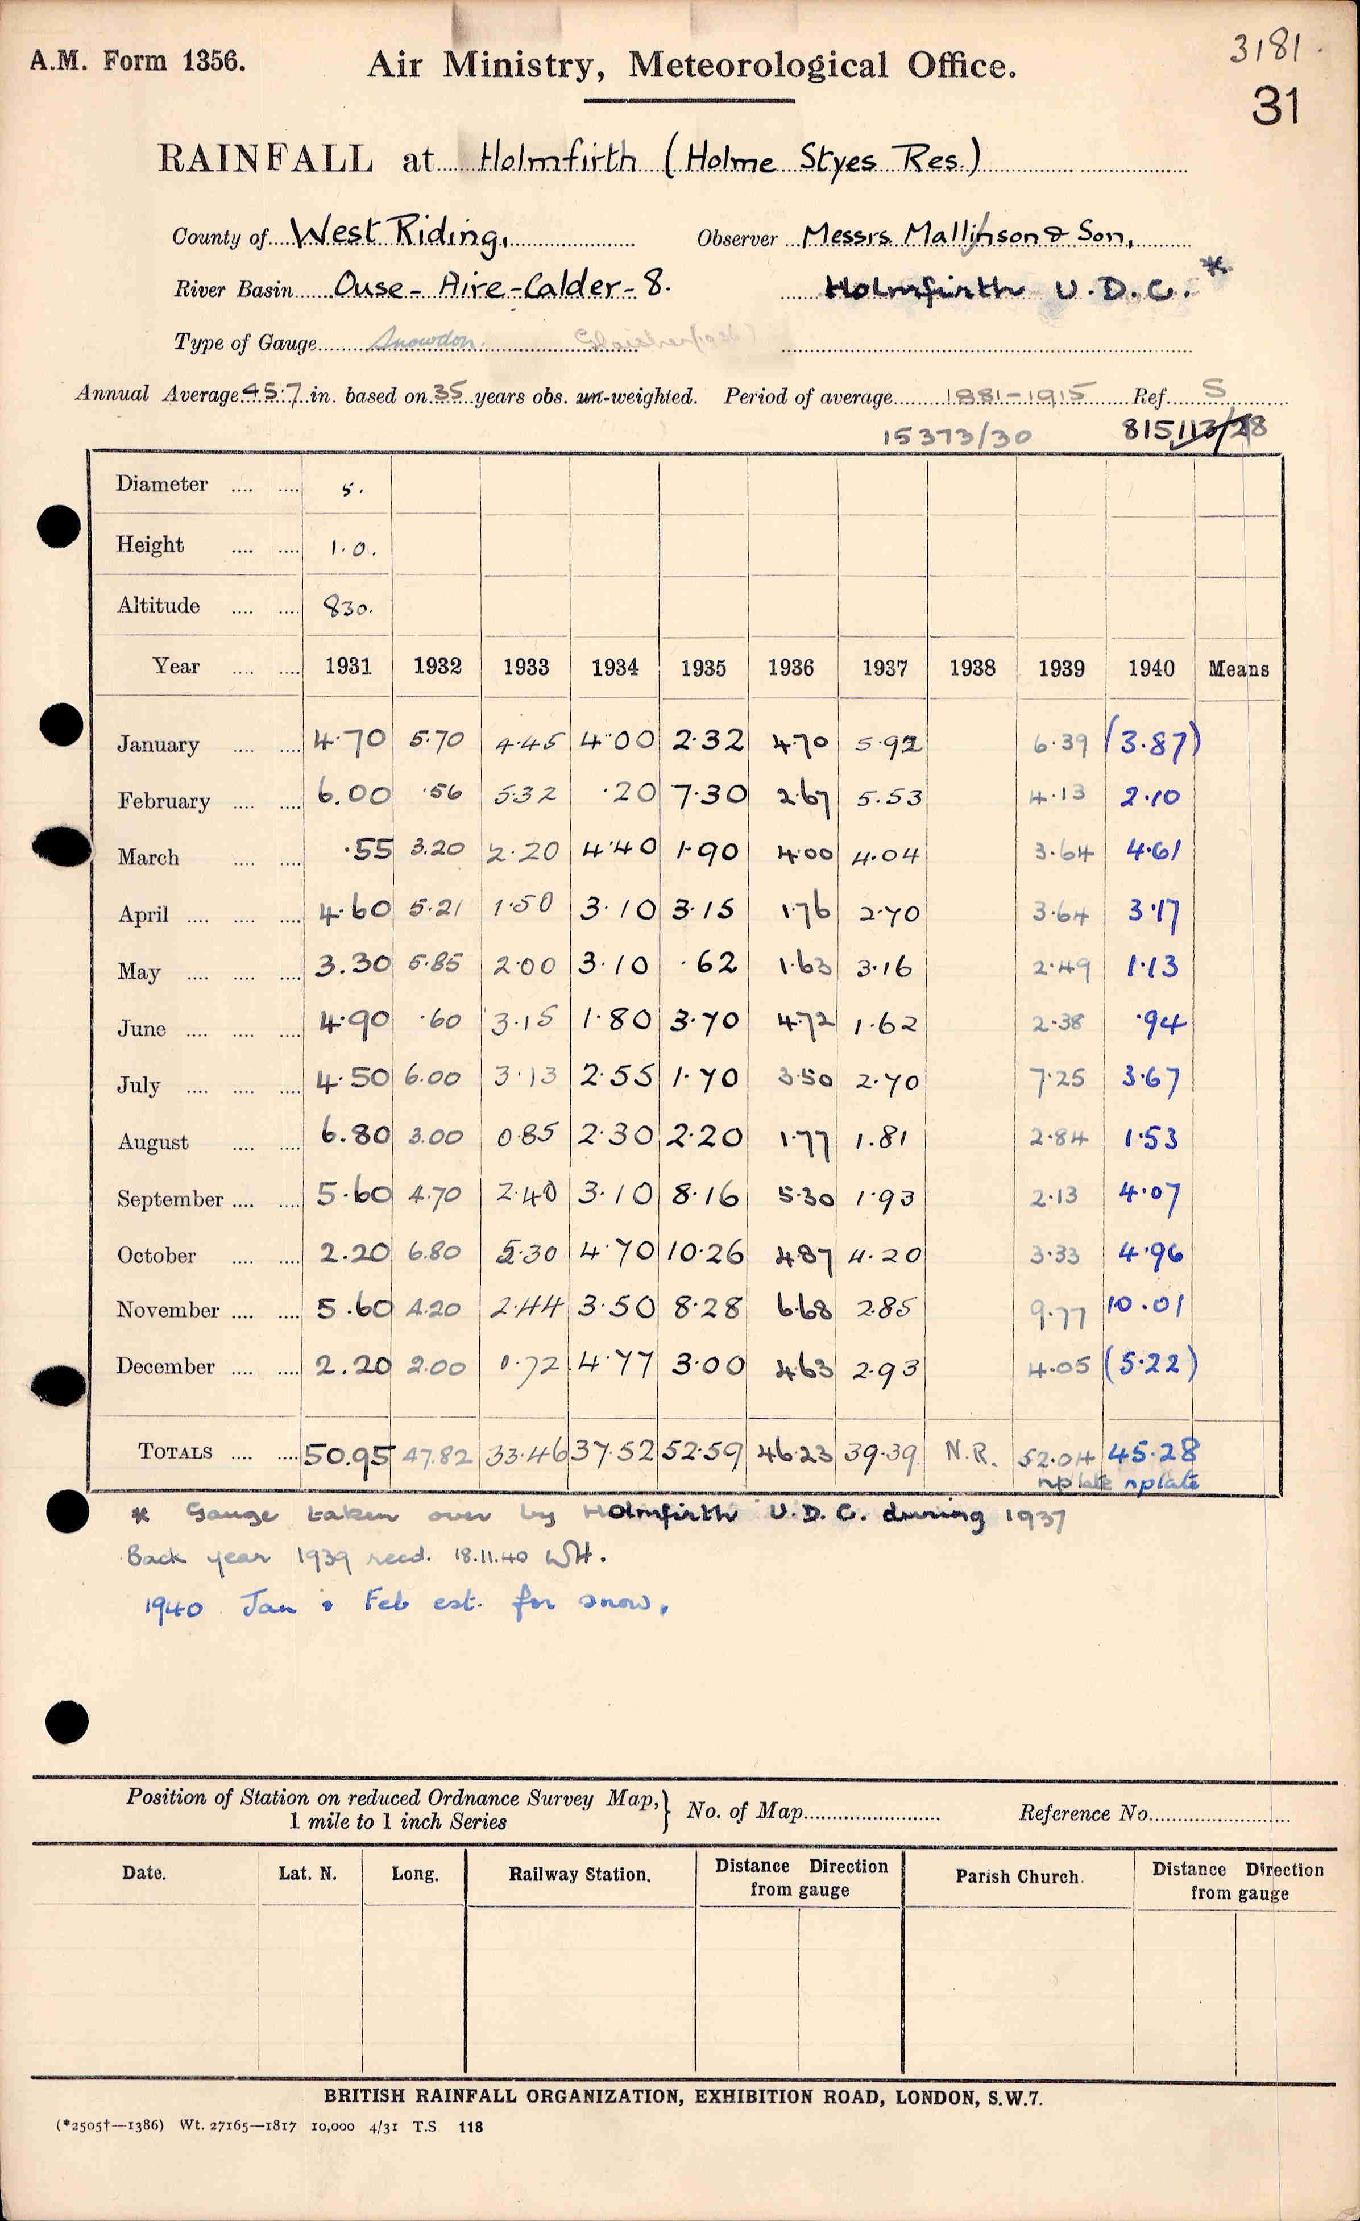 A.M. Form 1356.
Air Ministry, Meteorological Office.
3181.
31
RAINFALL at Holmfirth (Holme Styes Res.)
County of West Riding, Observer Messrs Mallinson & Son,
River Basin Ouse-Aire-Calder-8. Holmfirth U.D.C. *
Type of Gauge Snowdon.
Annual Average 45.7 in. based on 35 years obs. un-weighted. Period of average 1881-1915 Ref. S
15373/30 815113/28
Diameter 5.
Height 1.0.
Altitude 830.
Year 1931 1932 1933 1934 1935 1936 1937 1938 1939 1940 Means
January 4.70 5.70 4.45 4.00 2.32 4.70 5.92 6.39 (3.87)
February 6.00 .56 5.32 .20 7.30 2.67 5.53 4.13 2.10
March .55 3.20 2.20 4.40 1.90 4.00 4.04 3.64 4.61
April 4.60 5.21 1.50 3.10 3.15 1.76 2.70 3.64 3.17
May 3.30 5.85 2.00 3.10 .62 1.63 3.16 2.49 1.13
June 4.90 .60 3.15 1.80 3.70 4.72 1.62 2.38 .94
July 4.50 6.00 3.13 2.55 1.70 3.50 2.70 7.25 3.67
August 6.80 3.00 0.85 2.30 2.20 1.77 1.81 2.84 1.53
September 5.60 4.70 2.40 3.10 8.16 5.30 1.93 2.13 4.07
October 2.20 6.80 5.30 4.70 10.26 4.87 4.20 3.33 4.96
November 5.60 4.20 2.44 3.50 8.28 6.68 2.85 9.77 10.01
December 2.20 2.00 0.72 4.77 3.00 4.63 2.93 4.05 (5.22)
TOTALS 50.95 47.82 33.46 37.52 52.59 46.23 39.39 N.R. 52.04 45.28
nplate nplate
* Gauge taken over by Holmfirth U.D.C. during 1937
Back year 1939 recd. 18.11.40 WH.
1940 Jan & Feb est. for snow.
Position of Station on reduced Ordnance Survey Map, } No. of Map Reference No.
1 mile to 1 inch Series
Date. Lat. N. Long. Railway Station. Distance Direction from gauge Parish Church. Distance Direction from gauge
BRITISH RAINFALL ORGANIZATION, EXHIBITION ROAD, LONDON, S.W.7.
(*2505†—1386) Wt. 27165—1817 10,000 4/31 T.S 118